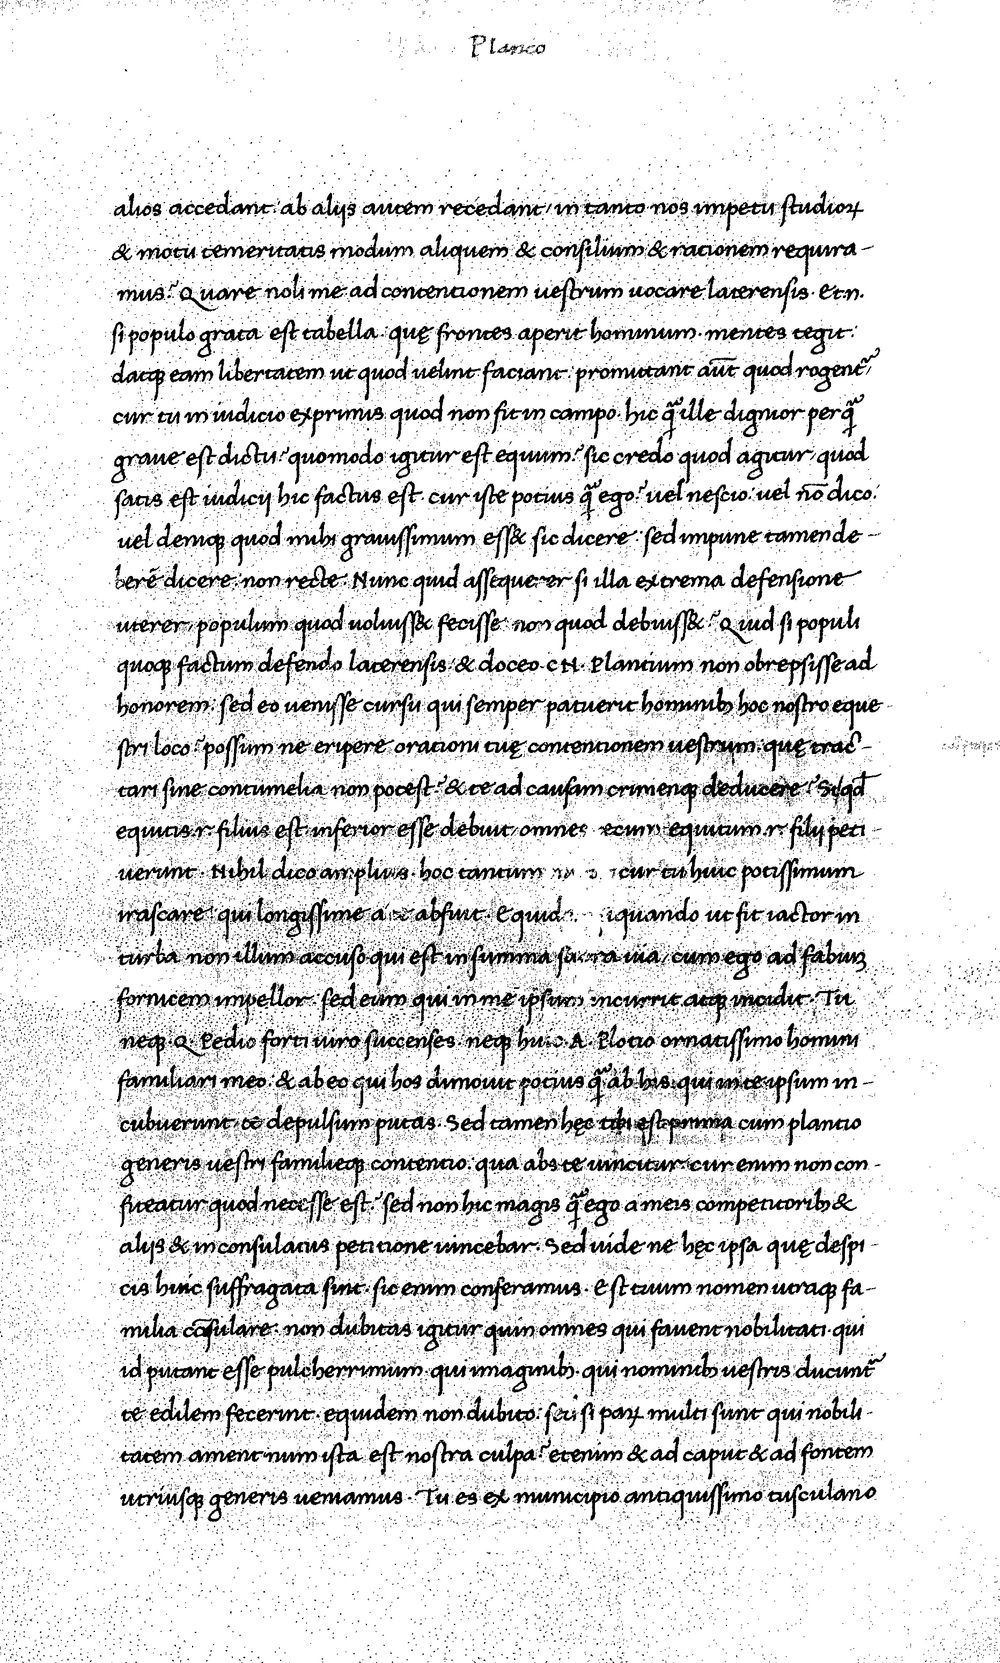 Planco
alios accedant: ab alijs autem recedant, in tanto nos impetu studioꝝ
& motu temeritatis modum aliquem & consilium & rationem requira-
mus? Quare noli me ad contentionem uestrum uocare laterensis. Et.n.
si populo grata est tabella. quę frontes aperit hominum. mentes tegit:
datqꝫ eam libertatem ut quod uelint faciant: promittant aūt quod rogent᷑,
cur tu in iudicio exprimis quod non fit in campo. hic q̄ ille dignior per q̄
graue est dictu? quomodo igitur est equum? sic credo quod agitur, quod
satis est iudicij hic factus est. cur iste potius q̄ ego? uel nescio. uel nō dico.
uel deniqꝫ quod mihi grauissimum ess& sic dicere. sed impune tamen de-
berē dicere. non recte. Nunc quid assequerer si illa extrema defensione
uterer, populum quod uoluiss& fecisse. non quod debuiss&? Quid si populi
quoqꝫ factum defendo laterensis. & doceo CN. Plantium non obrepsisse ad
honorem. sed eo uenisse cursu qui semper patuerit hominibꝫ hoc nostro eque
stri loco? possum ne eripere orationi tuę contentionem uestrum. quę trac-
tari sine contumelia non potest? & te ad causam crimenqꝫ deducere? Si qd̄
equitis.r. filius est. inferior esse debuit. omnes ecum equitum.r. filij peti-
uerunt. Nihil dico amplius. hoc tantum cur tu huic potissimum
irascare qui longissime a abfuit. Equid iquando ut fit iactor in
turba non illum accuso qui est in summa sacra uia, cum ego ad fabiuꝫ
fornicem impellor. sed eum qui in me ipsum incurrit atqꝫ incidit. Tu
neqꝫ Q. Pedio forti uiro succenses. neqꝫ huic A. Plotio ornatissimo homini
familiari meo. & ab eo qui hos dimouit potius q̄ ab his. qui in te ipsum in-
cubuerunt. te depulsum putas. Sed tamen hęc tibi est prima cum plantio
generis uestri familięqꝫ contentio. qua abs te uincitur. cur enim non con-
fiteatur quod necesse est? sed non hic magis q̄ ego a meis competitoribꝫ &
alijs & in consulatus petitione uincebar. Sed uide ne hęc ipsa quę despi-
cis huic suffragata sint. sic enim conferamus. Est tuum nomen utraqꝫ fa-
milia cōsulare. non dubitas igitur quin omnes qui fauent nobilitati. qui
id putant esse pulcherrimum. qui imaginibꝫ. qui nominibꝫ uestris ducunt᷑
te edilem fecerint. equidem non dubito. sed si paꝝ multi sunt qui nobili-
tatem ament. num ista est nostra culpa? etenim & ad caput & ad fontem
utriusqꝫ generis ueniamus. Tu es ex municipio antiquissimo tusculano